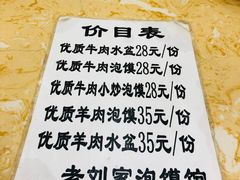 价目表
优质牛肉水盆28元/份
优质牛肉泡馍28元/份
优质牛肉小炒泡馍28元/份
优质羊肉泡馍35元/份
优质羊肉水盆35元/份
老刘家泡馍馆